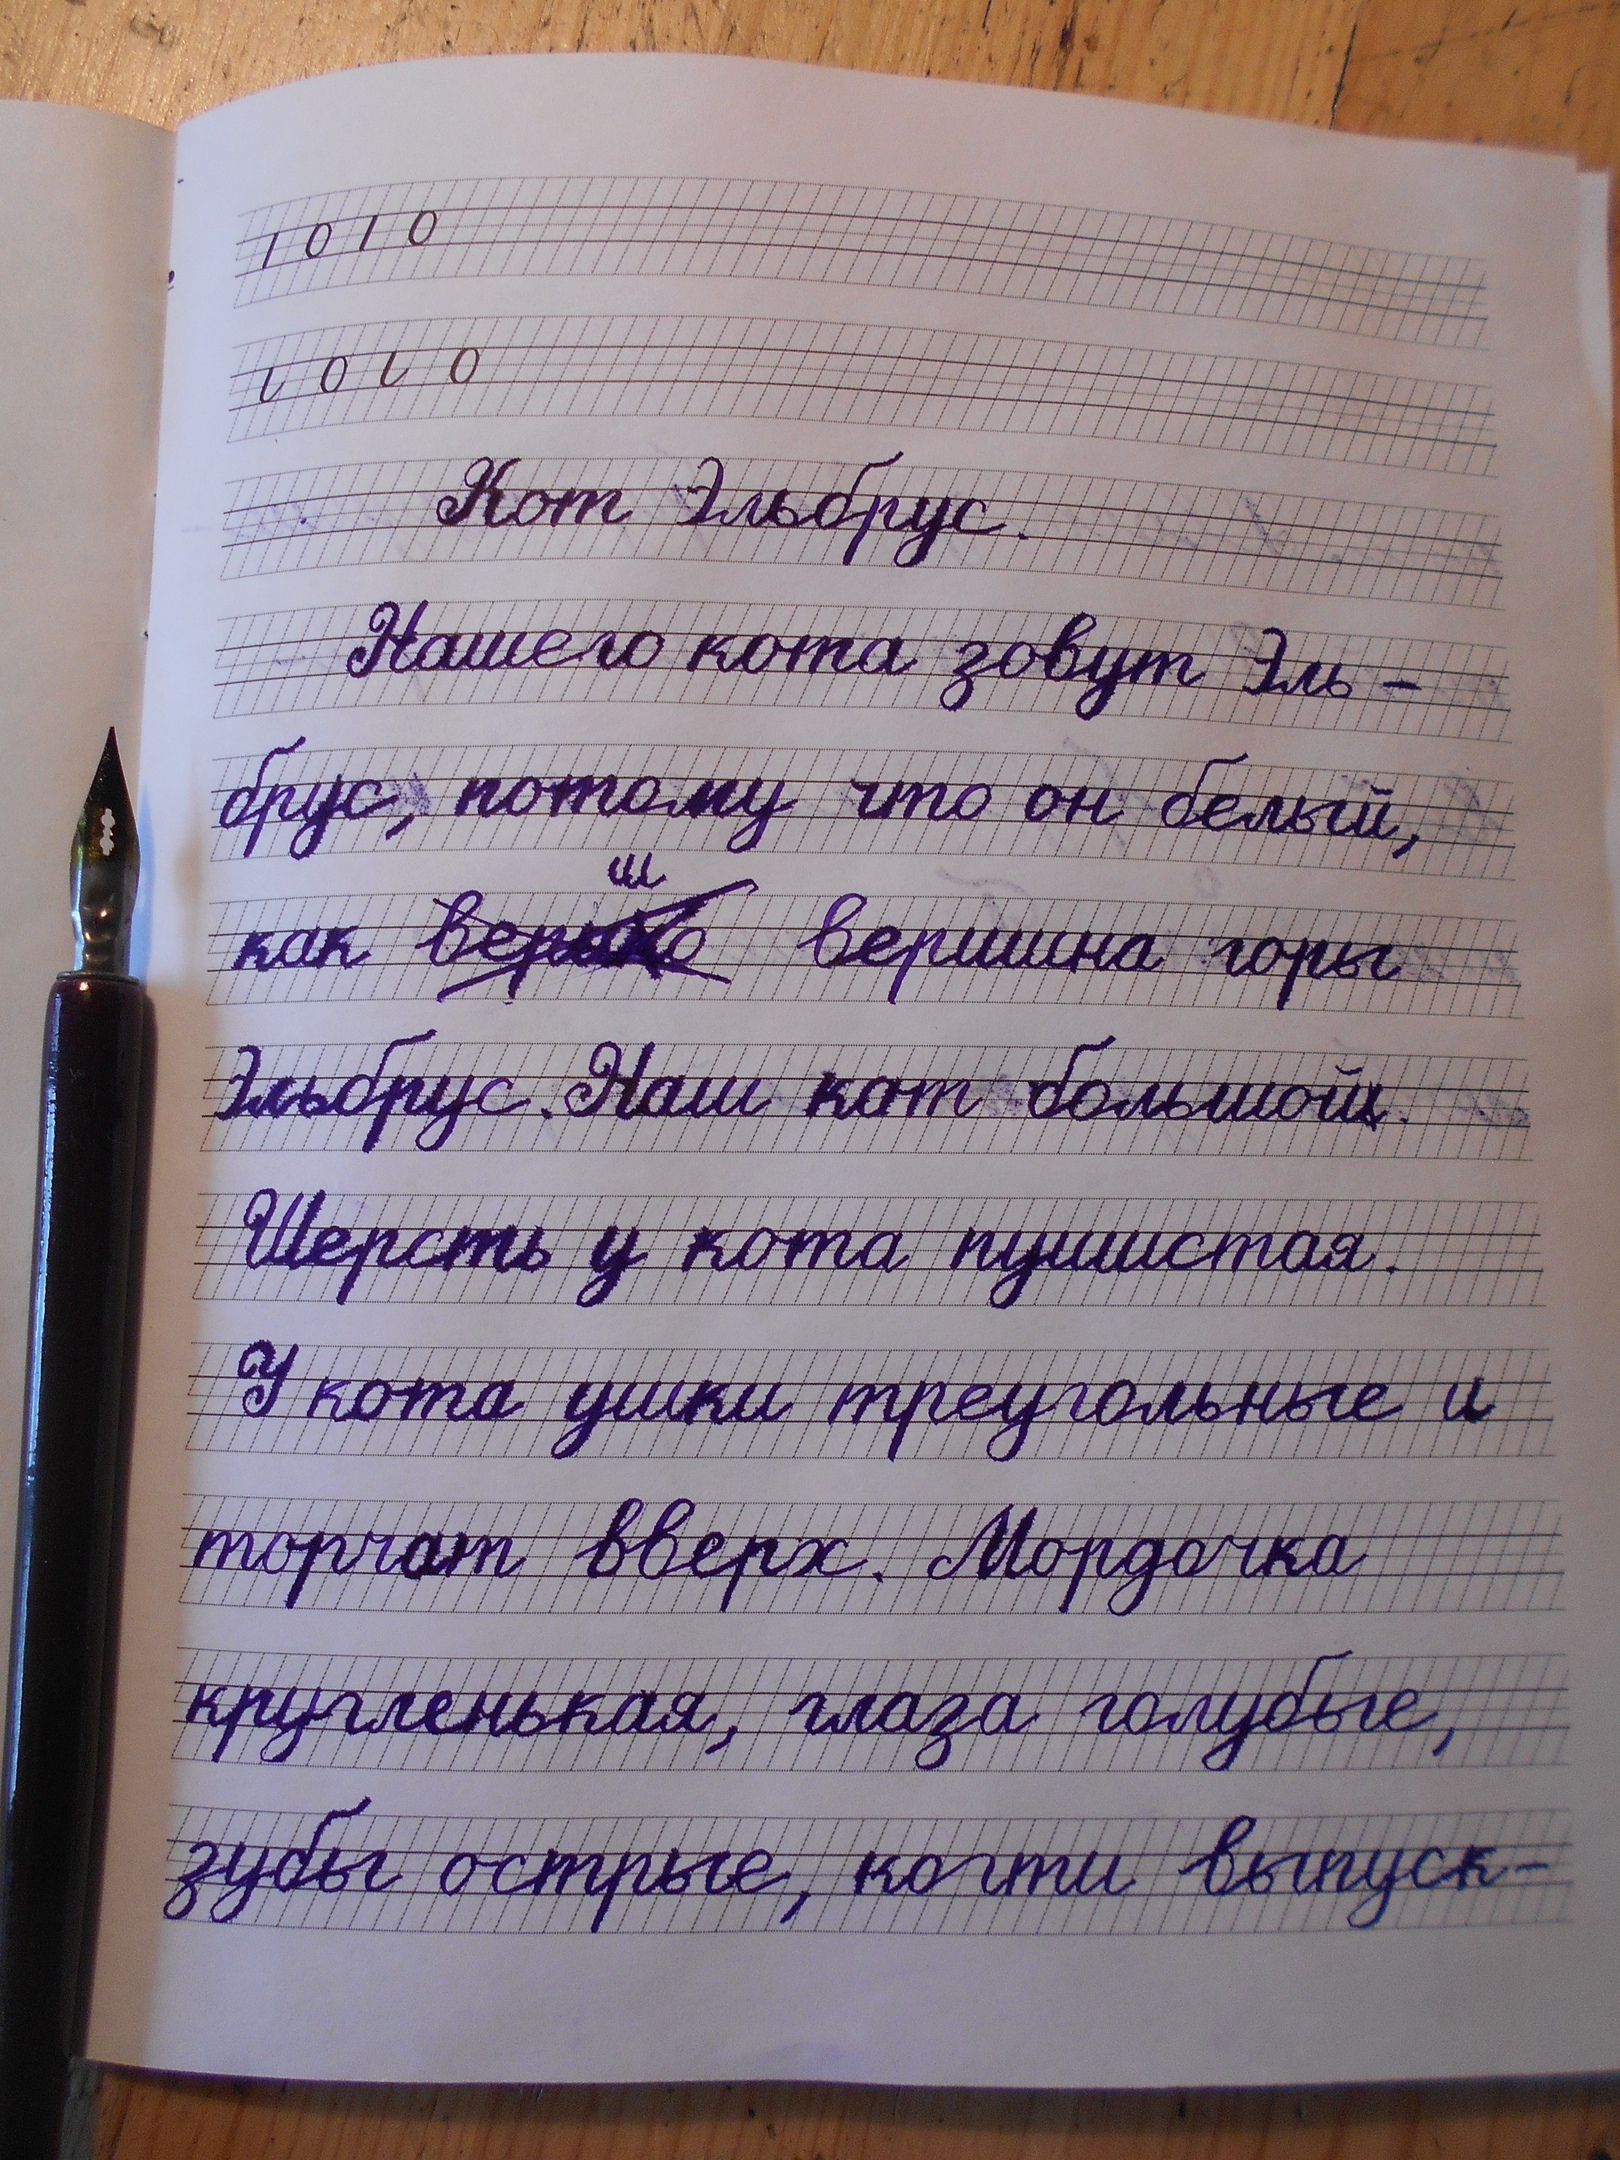 1 0 1 0
ι 0 ι 0
Кот Эльбрус.
Нашего кота зовут Эль-
брус, потому что он белый,
как вершина горы
Эльбрус. Наш кот большой.
Шерсть у кота пушистая.
У кота ушки треугольные и
торчат вверх. Мордочка
кругленькая, глаза голубые,
зубы острые, когти выпуск-